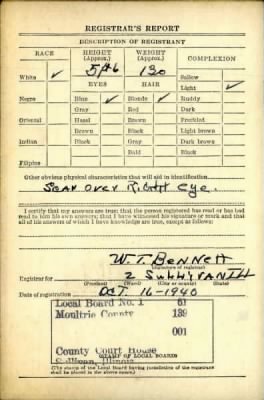 REGISTRAR'S REPORT
DESCRIPTION OF REGISTRANT
RACE HEIGHT (Approx.) WEIGHT (Approx.) COMPLEXION
White ✓ 5 ft 6 130 Sallow
EYES HAIR Light ✓
Negro Blue ✓ Blonde ✓ Ruddy
Gray Red Dark
Oriental Hazel Brown Freckled
Brown Black Light brown
Indian Black Gray Dark brown
Bald Black
Filipino
Other obvious physical characteristics that will aid in identification
Scar over Right Eye.
I certify that my answers are true; that the person registered has read or has had
read to him his own answers; that I have witnessed his signature or mark and that
all of his answers of which I have knowledge are true, except as follows:
W.T. Bennett
(Signature of registrar)
Registrar for 2
(Precinct) (Ward) (City or county) (State)
Date of registration Oct. 16-1940
Local Board No. 1 61
Moultrie County 139
001
County Court House
(STAMP OF LOCAL BOARD)
Sullivan, Illinois
(The stamp of the Local Board having jurisdiction of the registrant
shall be placed in the above space.)